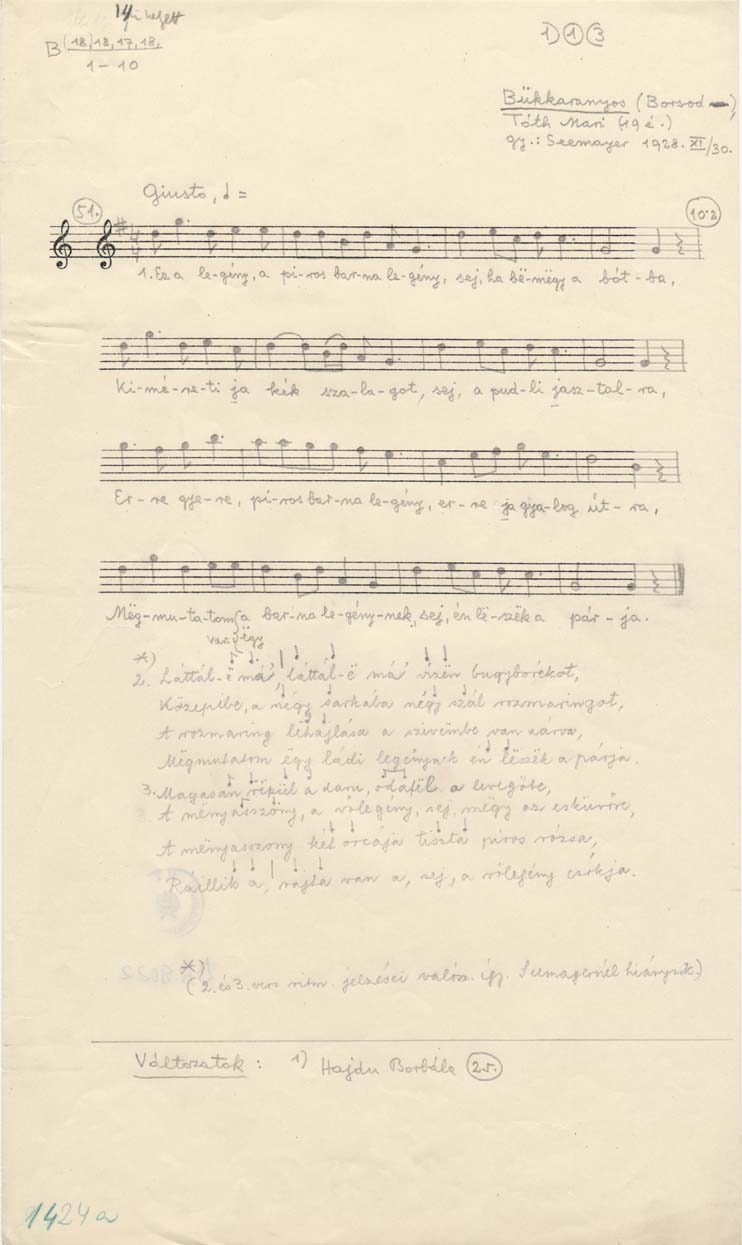 14
B (18) 18, 17, 18,
1–10
1) ① ③
Bükkaranyos (Borsod)
Tóth Mari (19 é.)
gy.: Seemayer 1928. XI/30.
Giusto, ♩ =
51.
1. Ez a le-gény, a pi-ros bar-na le-gény, sej, ha bë-mëgy a bót-ba,
Ki-mé-re-ti ja kék sza-la-got, sej, a pud-li jasz-tal-ra,
Er-re gye-re, pi-ros bar-na le-gény, er-re ja gya-log út-ra,
Mëg-mu-ta-tom a bar-na le-gény-nek, sej, én lë-szëk a pár-ja.
var. ëgy
*)
2. Láttál-ë má', láttál-ë má' vizën bugyborékot,
Közepibe, a négy sarkába négy szál rozmaringot,
A rozmaring léhajlása a szivembe van zárva,
Mëgmutatom ëgy ládi legénynek én lëszëk a párja.
3. Magasan rëpül a daru, a levegőbe,
A mënyasszony, a vőlegény, sej, mëgy az esküvőre,
A mënyasszony két orcája tiszta piros rózsa,
Raillik a, rajta van a, sej, a vőlegény csókja.
*)
(2. és 3. vers ritm. jelzései valósz. így. Seemayernél hiányzik.)
Változatok: 1) Hajdu Borbála 25.
1424a